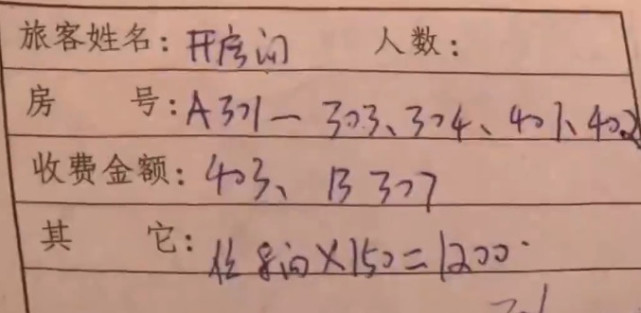 旅客姓名：开房间 人数：
房 号：A301一 303、304、401、402
收费金额：403、B307
其 它：住8间×150=1200.